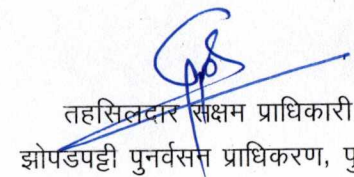 तहसिलदार सक्षम प्राधिकारी
झोपडपट्टी पुनर्वसन प्राधिकरण, पु